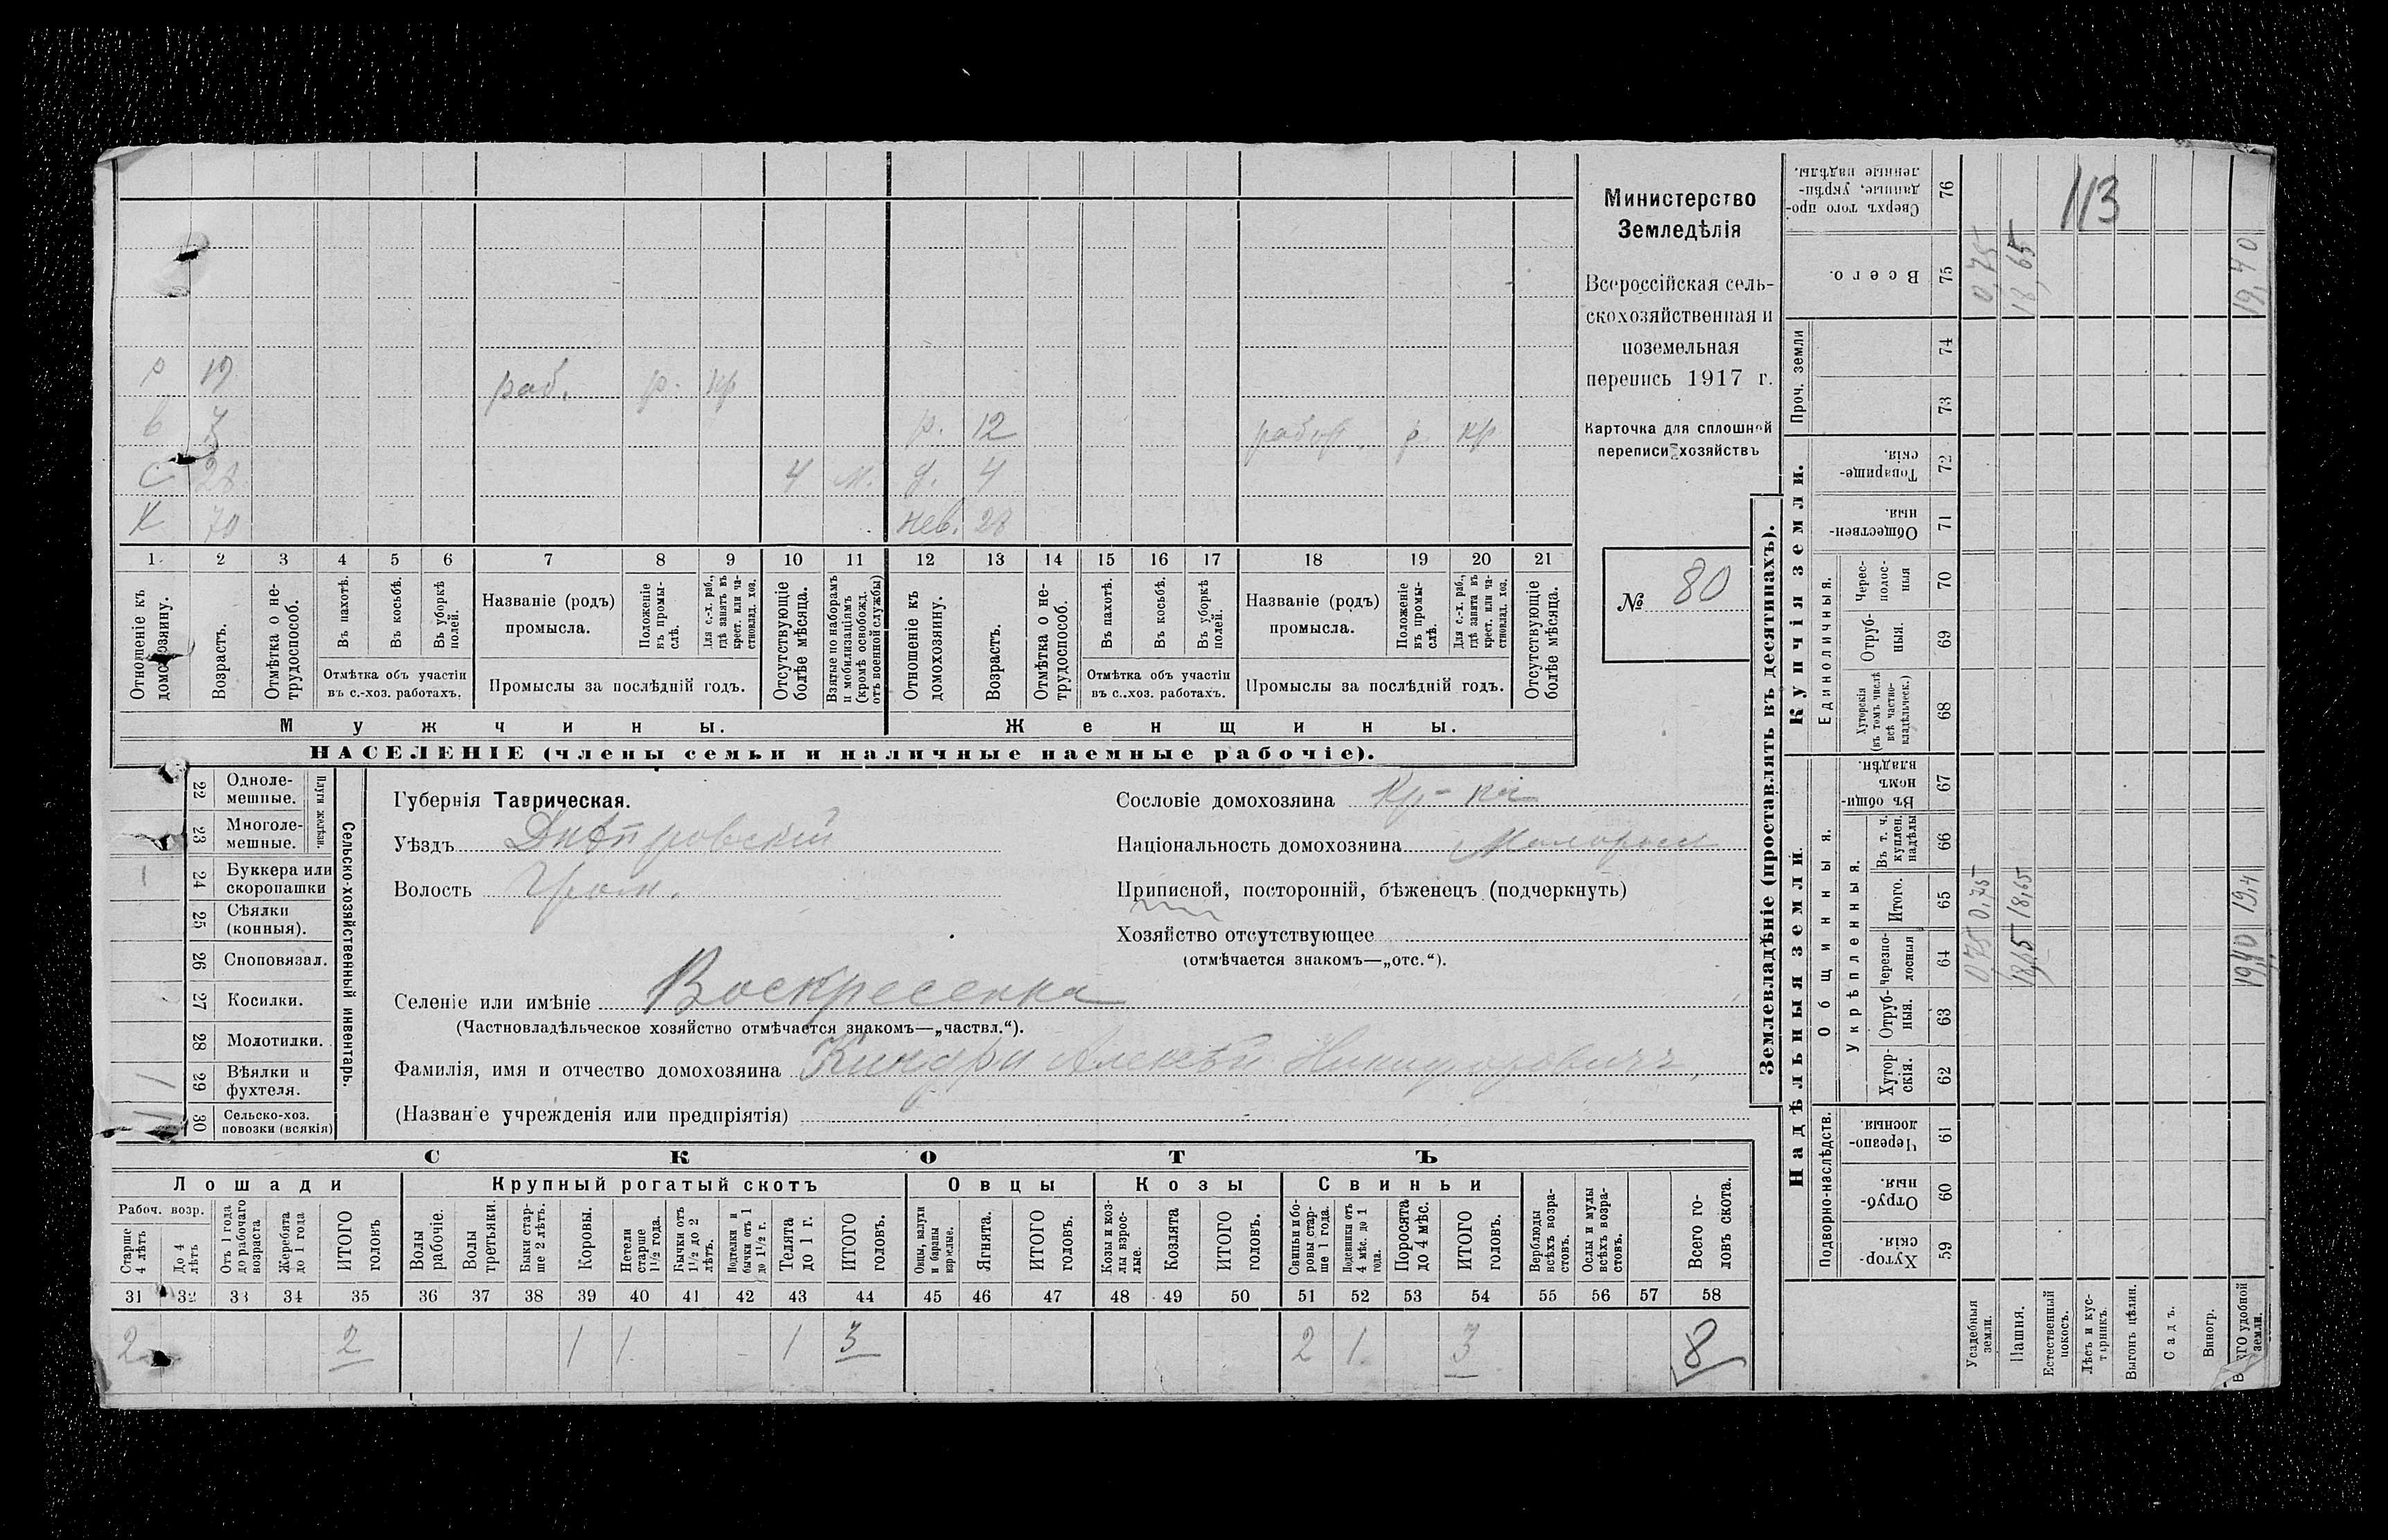 Министерство
Земледѣлія
Всероссійская сель-
скохозяйственная и
поземельная
перепись 1917 г.
Карточка для сплошной
переписи хозяйствъ
№ 80
113
р 19 раб. р. кр
в 3 р. 12 работ. р. кр
с 28 4 м. д. 4
К 70 нев. 28
1. 2 3 4 5 6 7 8 9 10 11 12 13 14 15 16 17 18 19 20 21
Отношеніе къ домохозяину.
Возрастъ.
Отмѣтка о не-трудоспособ.
Въ пахотѣ.
Въ косьбѣ.
Въ уборкѣ полей.
Отмѣтка объ участіи
въ с.-хоз. работахъ.
Названіе (родъ)
промысла.
Положеніе въ промы-слѣ.
Для с.-х. раб., гдѣ занятъ въ крест. или ча-стновлад. хоз.
Промыслы за послѣдній годъ.
Отсутствующіе болѣе мѣсяца.
Взятые по наборамъ и мобилизаціямъ (кромѣ освобожд. отъ военной службы)
Отношеніе къ домохозяину.
Возрастъ.
Отмѣтка о не-трудоспособ.
Въ пахотѣ.
Въ косьбѣ.
Въ уборкѣ полей.
Отмѣтка объ участіи
въ с.-хоз. работахъ.
Названіе (родъ)
промысла.
Положеніе въ промы-слѣ.
Для с.-х. раб., гдѣ занята въ крест. или ча-стновлад. хоз.
Промыслы за послѣдній годъ.
Отсутствующіе болѣе мѣсяца.
Мужчины.
Женщины.
НАСЕЛЕНІЕ (члены семьи и наличные наемные рабочіе).
Сельско-хозяйственный инвентарь.
Плуги желѣзн.
22 Одноле-мешные.
23 Многоле-мешные.
24 Буккера или скоропашки 1
25 Сѣялки (конныя).
26 Сноповязал.
27 Косилки.
28 Молотилки.
29 Вѣялки и фухтеля. 1
30 Сельско-хоз. повозки (всякія) 1
Губернія Таврическая.
Уѣздъ Днѣпровскій
Волость Гром.
Сословіе домохозяина Кр-ка
Національность домохозяина Малоросс
Приписной, посторонній, бѣженецъ (подчеркнуть)
Хозяйство отсутствующее
(отмѣчается знакомъ—„отс.“).
Селеніе или имѣніе Воскресенка
(Частновладѣльческое хозяйство отмѣчается знакомъ—„частвл.“).
Фамилія, имя и отчество домохозяина Алексѣй Никифоровичъ
(Названіе учрежденія или предпріятія)
СКОТЪ
Лошади
Крупный рогатый скотъ
Овцы
Козы
Свиньи
Рабоч. возр.
Старше 4 лѣтъ
До 4 лѣтъ
Отъ 1 года до рабочаго возраста
Жеребята до 1 года
ИТОГО головъ
Волы рабочіе.
Волы третьяки.
Быки стар-ше 2 лѣтъ.
Коровы.
Нетели старше 1½ года.
Бычки отъ 1½ до 2 лѣтъ.
Подтелки и бычки отъ 1 до 1½ г.
Телята до 1 г.
ИТОГО головъ.
Овцы, валухи и бараны взрослые.
Ягнята.
ИТОГО головъ.
Козы и коз-лы взрос-лые.
Козлята
ИТОГО головъ.
Свиньи и бо-ровы стар-ше 1 года.
Подсвинки отъ 4 мѣс. до 1 года.
Поросята до 4 мѣс.
ИТОГО головъ.
Верблюды всѣхъ возра-стовъ.
Ослы и мулы всѣхъ возра-стовъ.
Всего го-ловъ скота.
31 32 33 34 35 36 37 38 39 40 41 42 43 44 45 46 47 48 49 50 51 52 53 54 55 56 57 58
2 2 1 1 1 3 2 1 3 8
Землевладѣніе (проставлять въ десятинахъ).
Купчія земли.
Надѣльныя земли.
Сверхъ того про-данные, укрѣп-ленные надѣлы. 76
Всего. 75 0,75 18,65 19,40
Проч. земли
74
73
Товарище-скія. 72
Обществен-ныя. 71
Единоличныя.
Черес-полос-ныя 70
Отруб-ныя. 69
Хуторскія (въ томъ числѣ всѣ частно-владѣльческ.) 68
Общинныя.
Въ общи-номъ владѣн. 67
Укрѣпленныя.
Въ т. ч. куплен. надѣлы 66
Итого. 65 0,75 18,65 19,4
Черезпо-лосныя 64 0,75 18,65 19,40
Отруб-ныя. 63
Хутор-скія. 62
Подворно-наслѣдств.
Черезпо-лосныя. 61
Отруб-ныя. 60
Хутор-скія. 59
Усадебныя земли.
Пашня.
Естественный покосъ.
Лѣсъ и кус-тарникъ.
Выгонъ цѣлин.
Садъ.
Виногр.
ВСЕГО удобной земли.